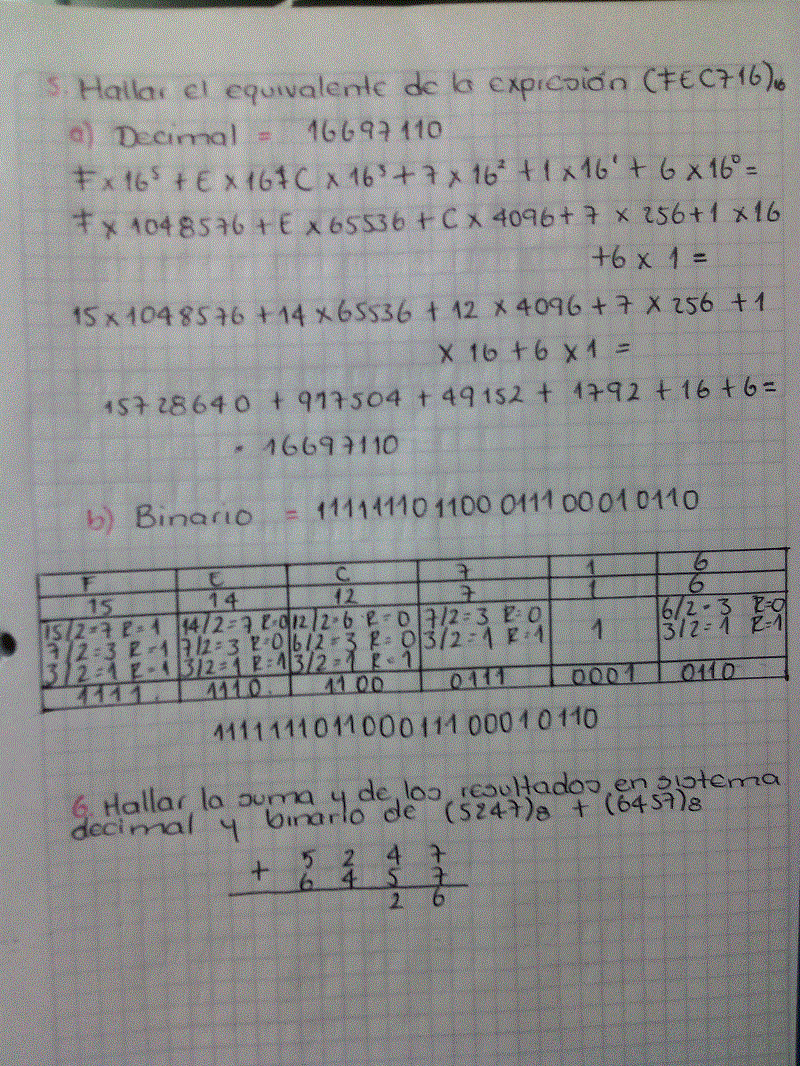 5. Hallar el equivalente de la expresión (FEC716)₁₆
a) Decimal = 16697110
F x 16⁵ + E x 16⁴ + C x 16³ + 7 x 16² + 1 x 16¹ + 6 x 16⁰ =
F x 1048576 + E x 65536 + C x 4096 + 7 x 256 + 1 x 16
+6 x 1 =
15 x 1048576 + 14 x 65536 + 12 x 4096 + 7 x 256 + 1
x 16 + 6 x 1 =
15728640 + 917504 + 49152 + 1792 + 16 + 6 =
= 16697110
b) Binario = 111111101100011100010110
F E C 7 1 6
15 14 12 7 1 6
15/2=7 R=1 14/2=7 R=0 12/2=6 R=0 7/2=3 R=0 1 6/2=3 R=0
7/2=3 R=1 7/2=3 R=0 6/2=3 R=0 3/2=1 R=1 3/2=1 R=1
3/2=1 R=1 3/2=1 R=1 3/2=1 R=1
1111. 1110. 1100 0111 0001 0110
111111101100011100010110
6. Hallar la suma y de los resultados en sistema
decimal y binario de (5247)8 + (6457)8
5 2 4 7
+ 6 4 5 7
2 6